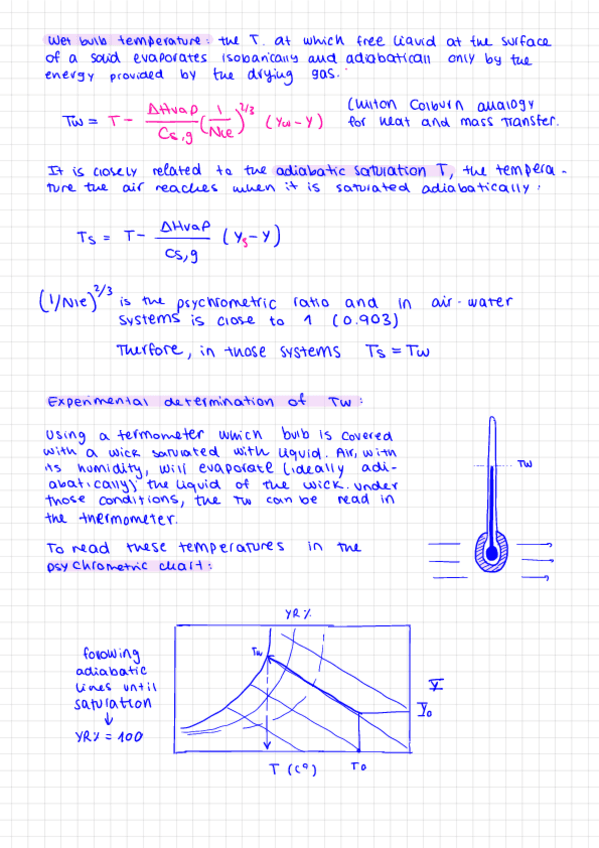 Wet bulb temperature: the T. at which free liquid at the surface
of a solid evaporates isobarically and adiabaticall only by the
energy provided by the drying gas.
Tw = T - ΔHvap / Cs,g (1/Nle)^2/3 (Yw - Y)
(Chilton Colburn analogy
for heat and mass transfer.
It is closely related to the adiabatic saturation T, the tempera-
ture the air reaches when it is saturated adiabatically:
Ts = T - ΔHvap / Cs,g (Ys - Y)
(1/Nle)^2/3 is the psychrometric ratio and in air-water
systems is close to 1 (0.903)
Therfore, in those systems Ts = Tw
Experimental determination of Tw:
Using a termometer which bulb is covered
with a wick saturated with liquid. Air, with
its humidity, will evaporate (ideally adi-
abatically) the liquid of the wick. Under
those conditions, the Tw can be read in
the thermometer.
Tw
To read these temperatures in the
psychrometric chart:
YR%
Tw
following
adiabatic
lines until
saturation
↓
YR% = 100
Y
Y0
T (Cº)
T0